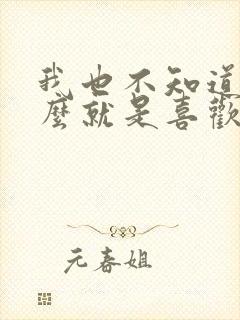 我也不知道
麼就是喜歡
元春姐